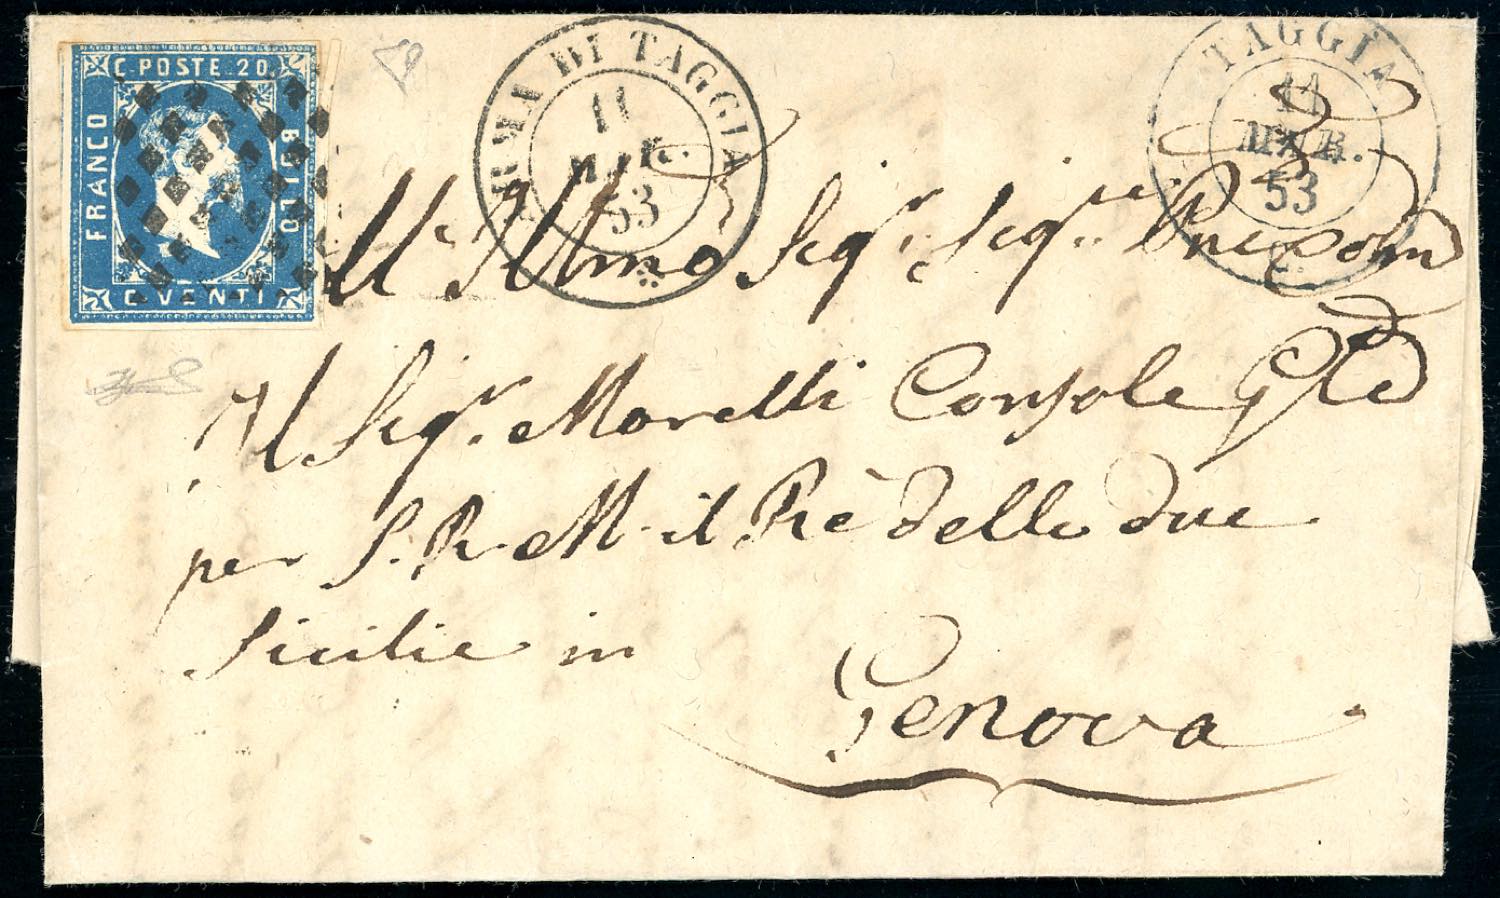 C. POSTE. 20
FRANCO
BOLLO
C. VENTI
ARMA DI TAGGIA
11
MAR.
53
TAGGIA
11
MAR.
53
All' Illmo Sigr. Sigr.
Al Sigr. Morelli Console Gle
per S. R. M. il Rè delle due
Sicilie in
Genova